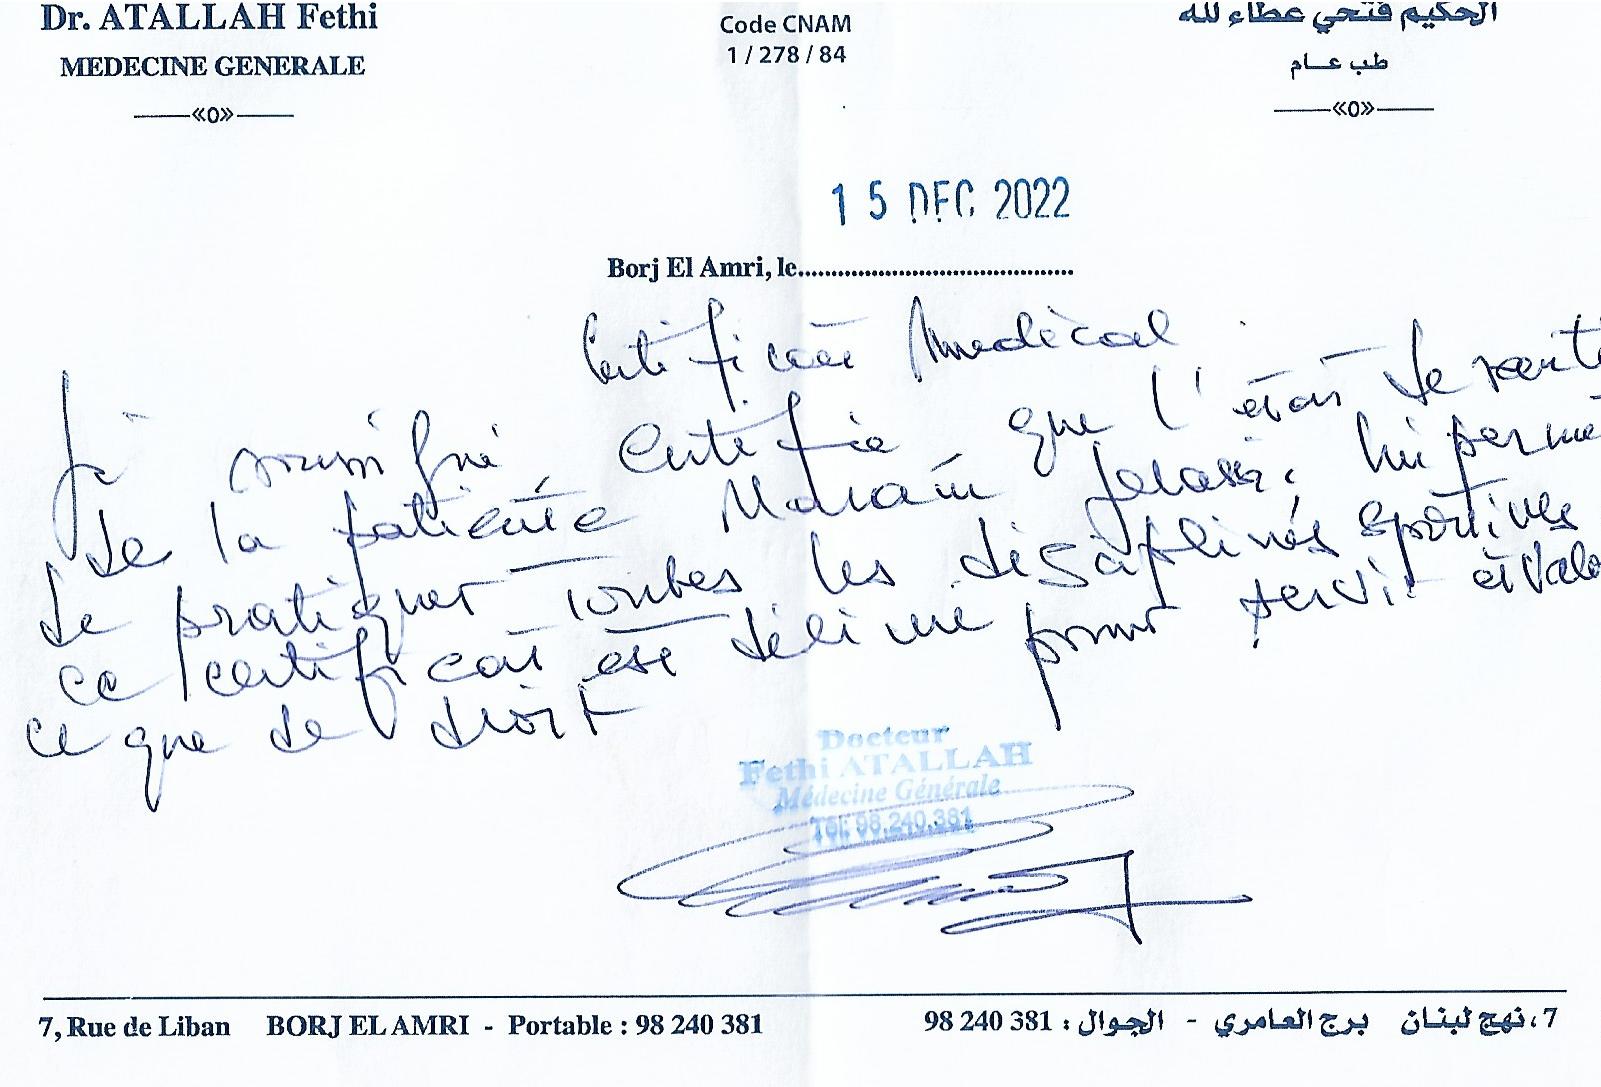 Dr. ATALLAH Fethi
MEDECINE GENERALE
«o»
Code CNAM
1 / 278 / 84
الحكيم فتحي عطاء لله
طب عام
«o»
15 DEC 2022
Borj El Amri, le
Certificat Medical
Je soussigné, certifie que l'état de santé
de la patiente Maram Jelassi lui permet
de pratiquer toutes les disciplines sportives
ce certificat est délivré pour servir et valo
ce que de droit
Docteur
Fethi ATALLAH
Médecine Générale
Tél: 98.240.381
7, Rue de Liban BORJ EL AMRI - Portable : 98 240 381
7، نهج لبنان برج العامري - الجوال : 381 240 98